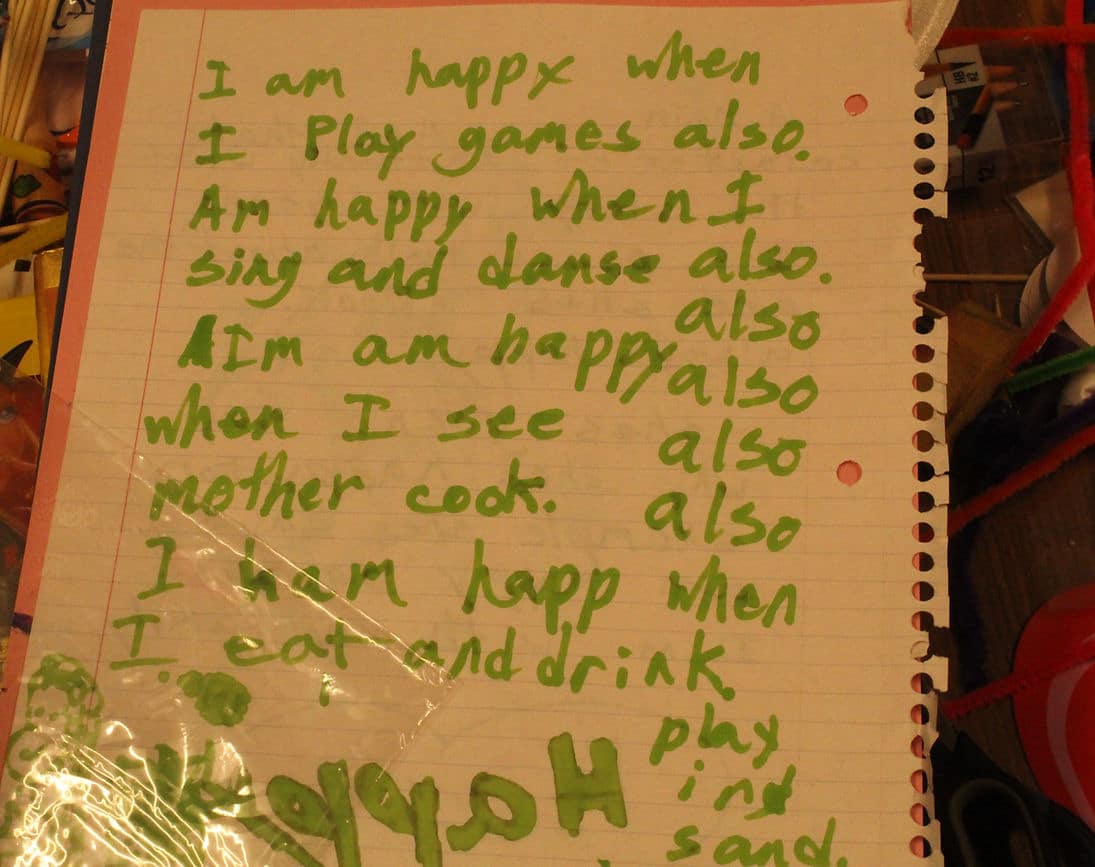 I am happy when
I Play games also.
Am happy when I
sing and danse also.
also
AIm am happy also
when I see also
mother cook. also
I ham happ when
I eat and drink.
play
ind
sand.
Happy
HB
#2